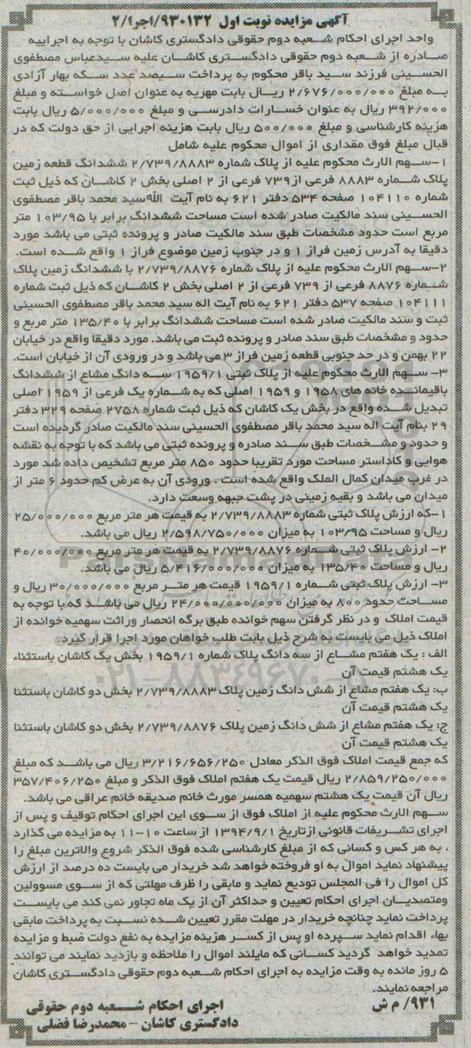 آگهی مزایده نوبت اول ۹۳۰۱۳۲/اجرا/۲
واحد اجرای احکام شعبه دوم حقوقی دادگستری کاشان با توجه به اجراییه
صادره از شعبه دوم حقوقی دادگستری کاشان علیه سیدعباس مصطفوی
الحسینی فرزند سید باقر محکوم به پرداخت سیصد عدد سکه بهار آزادی
به مبلغ ۲/۶۷۶/۰۰۰/۰۰۰ ریال بابت مهریه به عنوان اصل خواسته و مبلغ
۳۹۲/۰۰۰ ریال به عنوان خسارات دادرسی و مبلغ ۵/۰۰۰/۰۰۰ ریال بابت
هزینه کارشناسی و مبلغ ۵۰۰/۰۰۰ ریال بابت هزینه اجرایی از حق دولت که در
قبال مبلغ فوق مقداری از اموال محکوم علیه شامل
۱-سهم الارث محکوم علیه از پلاک شماره ۲/۷۳۹/۸۸۸۳ ششدانگ قطعه زمین
پلاک شماره ۸۸۸۳ فرعی از۷۳۹ فرعی از ۲ اصلی بخش ۲ کاشان که ذیل ثبت
شماره ۱۰۴۱۱۰ صفحه ۵۳۴ دفتر ۶۲۱ به نام آیت الله سید محمد باقر مصطفوی
الحسینی سند مالکیت صادر شده است مساحت ششدانگ برابر با ۱۰۳/۹۵ متر
مربع است حدود مشخصات طبق سند مالکیت صادر و پرونده ثبتی می باشد مورد
دقیقا به آدرس زمین فراز ۱ و در جنوب زمین موضوع فراز ۱ واقع شده است.
۲-سهم الارث محکوم علیه از پلاک شماره ۲/۷۳۹/۸۸۷۶ با ششدانگ زمین پلاک
شماره ۸۸۷۶ فرعی از ۷۳۹ فرعی از ۲ اصلی بخش ۲ کاشان که ذیل ثبت شماره
۱۰۴۱۱۱ صفحه ۵۳۷ دفتر ۶۲۱ به نام آیت اله سید محمد باقر مصطفوی الحسینی
ثبت و سند مالکیت صادر شده است مساحت ششدانگ برابر با ۱۳۵/۴۰ متر مربع و
حدود و مشخصات طبق سند صادر و پرونده ثبت می باشد. مورد دقیقا واقع در خیابان
۲۲ بهمن و در حد جنوبی قطعه زمین فراز ۳ می باشد و در ورودی آن از خیابان است.
۳- سهم الارث محکوم علیه از پلاک ثبتی ۱۹۵۹/۱ سه دانگ مشاع از ششدانگ
باقیمانده خانه های ۱۹۵۸ و ۱۹۵۹ اصلی که به شماره یک فرعی از ۱۹۵۹ اصلی
تبدیل شده واقع در بخش یک کاشان که ذیل ثبت شماره ۲۷۵۸ صفحه ۳۲۹ دفتر
۲۹ بنام آیت اله سید محمد باقر مصطفوی الحسینی سند مالکیت صادر گردیده است
و حدود و مشخصات طبق سند صادره و پرونده ثبتی می باشد که با توجه به نقشه
هوایی و کاداستر مساحت مورد تقریبا حدود ۸۵۰ متر مربع تشخیص داده شد مورد
در غرب میدان کمال الملک واقع شده است . ورودی آن به عرض کم حدود ۶ متر از
میدان می باشد و بقیه زمینی در پشت جبهه وسعت دارد.
۱-که ارزش پلاک ثبتی شماره ۲/۷۳۹/۸۸۸۳ به قیمت هر متر مربع ۲۵/۰۰۰/۰۰۰
ریال و مساحت ۱۰۳/۹۵ به میزان ۲/۵۹۸/۷۵۰/۰۰۰ ریال می باشد.
۲- ارزش پلاک ثبتی شماره ۲/۷۳۹/۸۸۷۶ به قیمت هر متر مربع ۴۰/۰۰۰/۰۰۰
ریال و مساحت ۱۳۵/۴۰ به میزان ۵/۴۱۶/۰۰۰/۰۰۰ ریال می باشد.
۳- ارزش پلاک ثبتی شماره ۱۹۵۹/۱ قیمت هر متر مربع ۳۰/۰۰۰/۰۰۰ ریال و
مساحت حدود ۸۰۰ به میزان ۲۴/۰۰۰/۰۰۰/۰۰۰ ریال می باشد که با توجه به
قیمت املاک و در نظر گرفتن سهم خوانده طبق برگه انحصار وراثت سهمیه خوانده از
املاک ذیل می بایست به شرح ذیل بابت طلب خواهان مورد اجرا قرار گیرد.
الف : یک هفتم مشاع از سه دانگ پلاک شماره ۱۹۵۹/۱ بخش یک کاشان باستثناء
یک هشتم قیمت آن
ب: یک هفتم مشاع از شش دانگ زمین پلاک ۲/۷۳۹/۸۸۸۳ بخش دو کاشان باستثنا
یک هشتم قیمت آن
ج: یک هفتم مشاع از شش دانگ زمین پلاک ۲/۷۳۹/۸۸۷۶ بخش دو کاشان باستثنا
یک هشتم قیمت آن
که جمع قیمت املاک فوق الذکر معادل ۳/۲۱۶/۶۵۶/۲۵۰ ریال می باشد که مبلغ
۲/۸۵۹/۲۵۰/۰۰۰ ریال قیمت یک هفتم املاک فوق الذکر و مبلغ ۳۵۷/۴۰۶/۲۵۰
ریال آن قیمت یک هشتم سهمیه همسر مورث خانم صدیقه خانم عراقی می باشد.
سهم الارث محکوم علیه از املاک فوق از سوی این اجرای احکام توقیف و پس از
اجرای تشریفات قانونی ازتاریخ ۱۳۹۴/۹/۱ از ساعت ۱۰-۱۱ به مزایده می گذارد
، به هر کس و کسانی که از مبلغ کارشناسی شده فوق الذکر شروع والاترین مبلغ را
پیشنهاد نماید اموال به او فروخته خواهد شد خریدار می بایست ده درصد از ارزش
کل اموال را فی المجلس تودیع نماید و مابقی را ظرف مهلتی که از سوی مسوولین
ومتصدیان اجرای احکام تعیین و حداکثر آن از یک ماه تجاوز نمی کند می بایست
پرداخت نماید چنانچه خریدار در مهلت مقرر تعیین شده نسبت به پرداخت مابقی
بهاء اقدام ننماید سپرده او پس از کسر هزینه مزایده به نفع دولت ضبط و مزایده
تمدید خواهد گردید کسانی که مایلند اموال را ملاحظه و بازدید نمایند می توانند
۵ روز مانده به وقت مزایده به اجرای احکام شعبه دوم حقوقی دادگستری کاشان
مراجعه نمایند.
۹۳۱/ م ش
اجرای احکام شعبه دوم حقوقی
دادگستری کاشان – محمدرضا فضلی